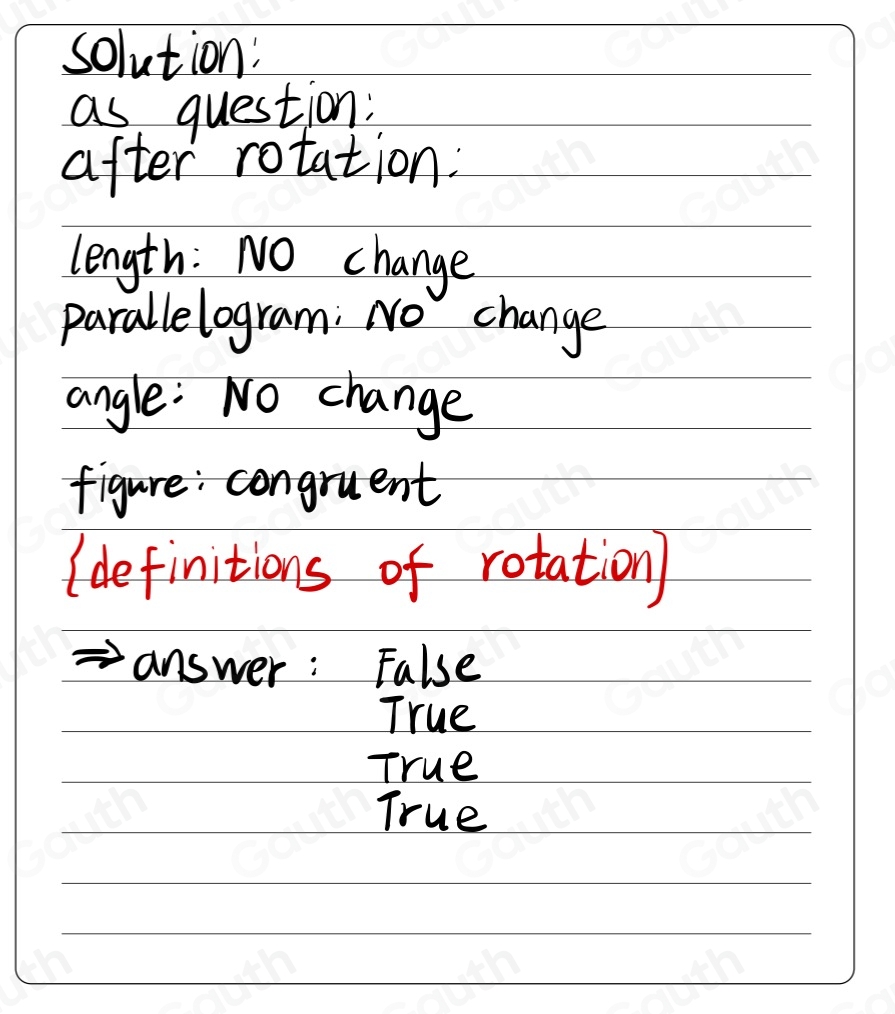 solution:
as question:
after rotation:
length: NO change
parallelogram: NO change
angle: NO change
figure: congruent
{definitions of rotation}
⇒ answer: False
True
True
True